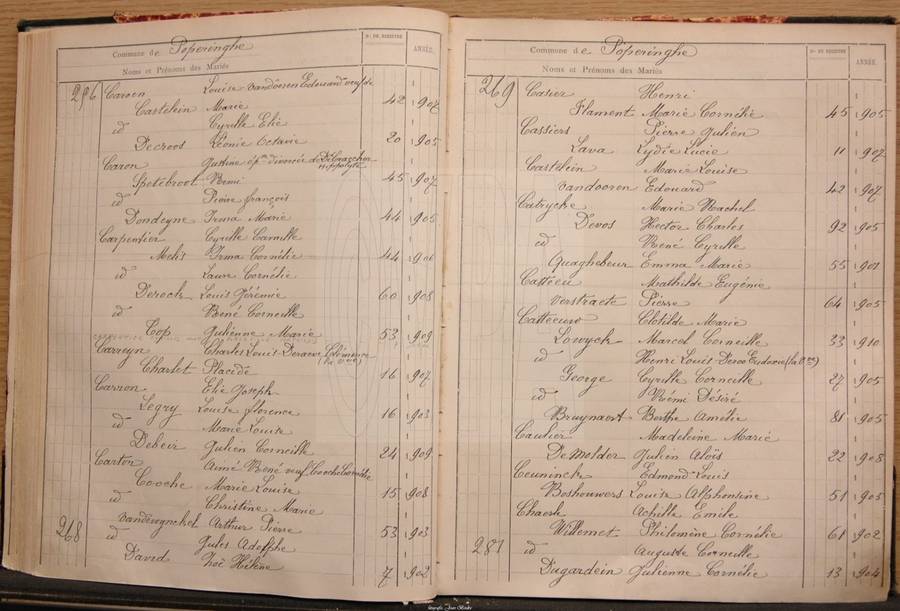 Commune de Poperinghe
Nos DE REGISTRE
ANNÉE
Noms et Prénoms des Mariés
Caroen Louise Vandooren Edouard veuf de
Castelein Marie 42 1907
id Cyrille Elié
Decroos Léonie Octavie 20 1905
Caron Justine divorcée de
Spetebroot Remi 45 1907
id Pierre françois
Dondeyne Irma Marie 44 1905
Carpentier Cyrille Camille
Melis Irma Cornélie 44 1906
id Laure Cornélie
Deroch Louis Jérémie 60 1908
id René Corneille
Top Julienne Marie 53 1909
Carreyn Charles Louis
Charlet Placide 16 1907
Carron Elie Joseph
Legry Louise florence 16 1903
id Marie Louise
Debeir Julien Corneille 24 1909
Carton Aimé René veuf Cooche Cornélie
Cooche Marie Louise 15 1908
id Christine Marie
Arthur Pierre 53 1903
268 id Jules Adolphe
David Zoé Hélène 7 1902
Commune de Poperinghe
Nos DE REGISTRE
ANNÉE
Noms et Prénoms des Mariés
269 Casier Henri
Flament Marie Cornélie 45 1905
Cassiers Pierre Julien
Lava Lydie Lucie 11 1907
Castelein Marie Louise
Vandooren Edouard 42 1907
Catrycke Marie Rachel
Devos Hector Charles 92 1905
id René Cyrille
Quaghebeur Emma Marie 55 1901
Catteeu Mathilde Eugénie
Verstraete Pierre 64 1905
Catteeuw Clotilde Marie
Lowyck Marcel Corneille 33 1910
id Henri Louis
George Cyrille Corneille 27 1905
id Rémi Désiré
Bruynaert Berthe Amélie 81 1905
Caulier Madeleine Marie
DeMolder Julien Aloïs 22 1908
Ceuninck Edmond Louis
Boshouwers Louise Alphonsine 51 1905
Chaerle Achille Emile
Willemet Philomène Cornélie 61 1902
281 id Auguste Corneille
Dugardein Julienne Cornélie 13 1904